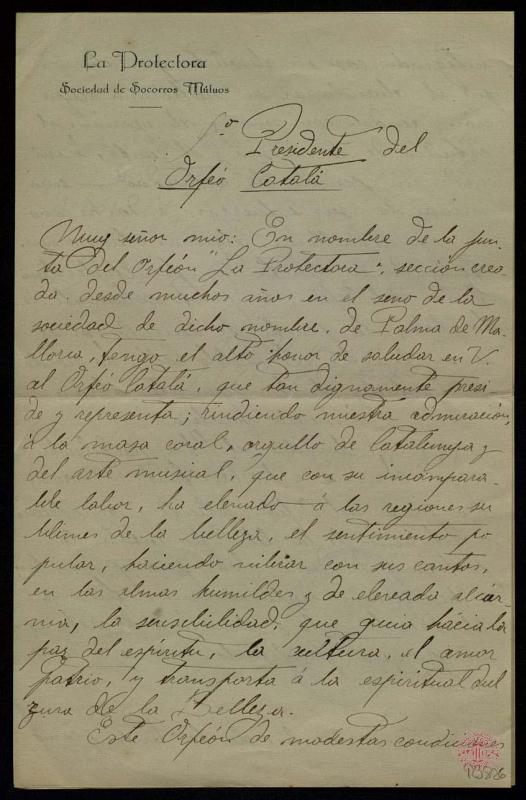 La Protectora
Sociedad de Socorros Mútuos
Sr. Presidente del
Orfeó Catalá
Muy señor mio: En nombre de la jun-
ta del Orfeón "La Protectora", sección crea-
da desde muchos años en el seno de la
sociedad de dicho nombre, de Palma de Ma-
llorca, tengo el alto honor de saludar en V.
al Orfeó Catalá, que tan dignamente presi-
de y representa; rindiendo nuestra admiración,
á la masa coral, orgullo de Catalunya y
del arte musical, que con su incompara-
ble labor, ha elevado á las regiones su
blimes de la belleza, el sentimiento po
pular, haciendo vibrar con sus cantos,
en las almas humildes y de elevada alcur-
nia, la sensibilidad, que guia hácia la
paz del espíritu, la cultura, el amor
patrio, y transporta á la espiritual dul
zura de la Belleza.
Este Orfeón de modestas condiciones